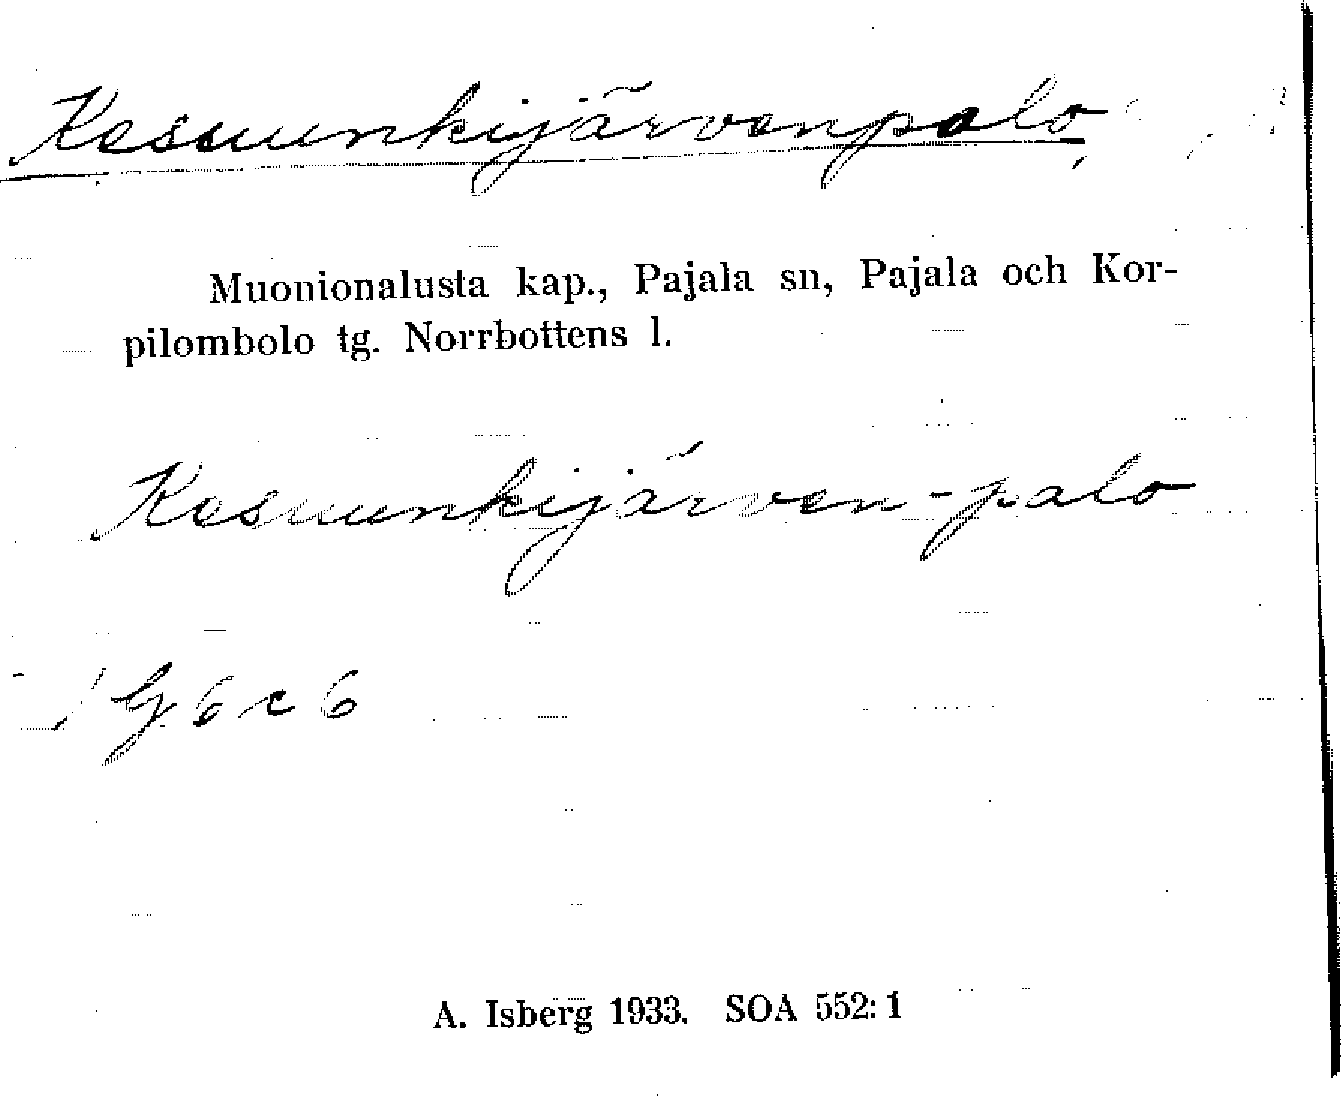 Kesuunkijärvenpalo,
Muonionalusta kap., Pajala sn, Pajala och Kor-
pilombolo tg. Norrbottens l.
Kesuunkijärven-palo
G 6 c 6
A. Isberg 1933. SOA 552:1